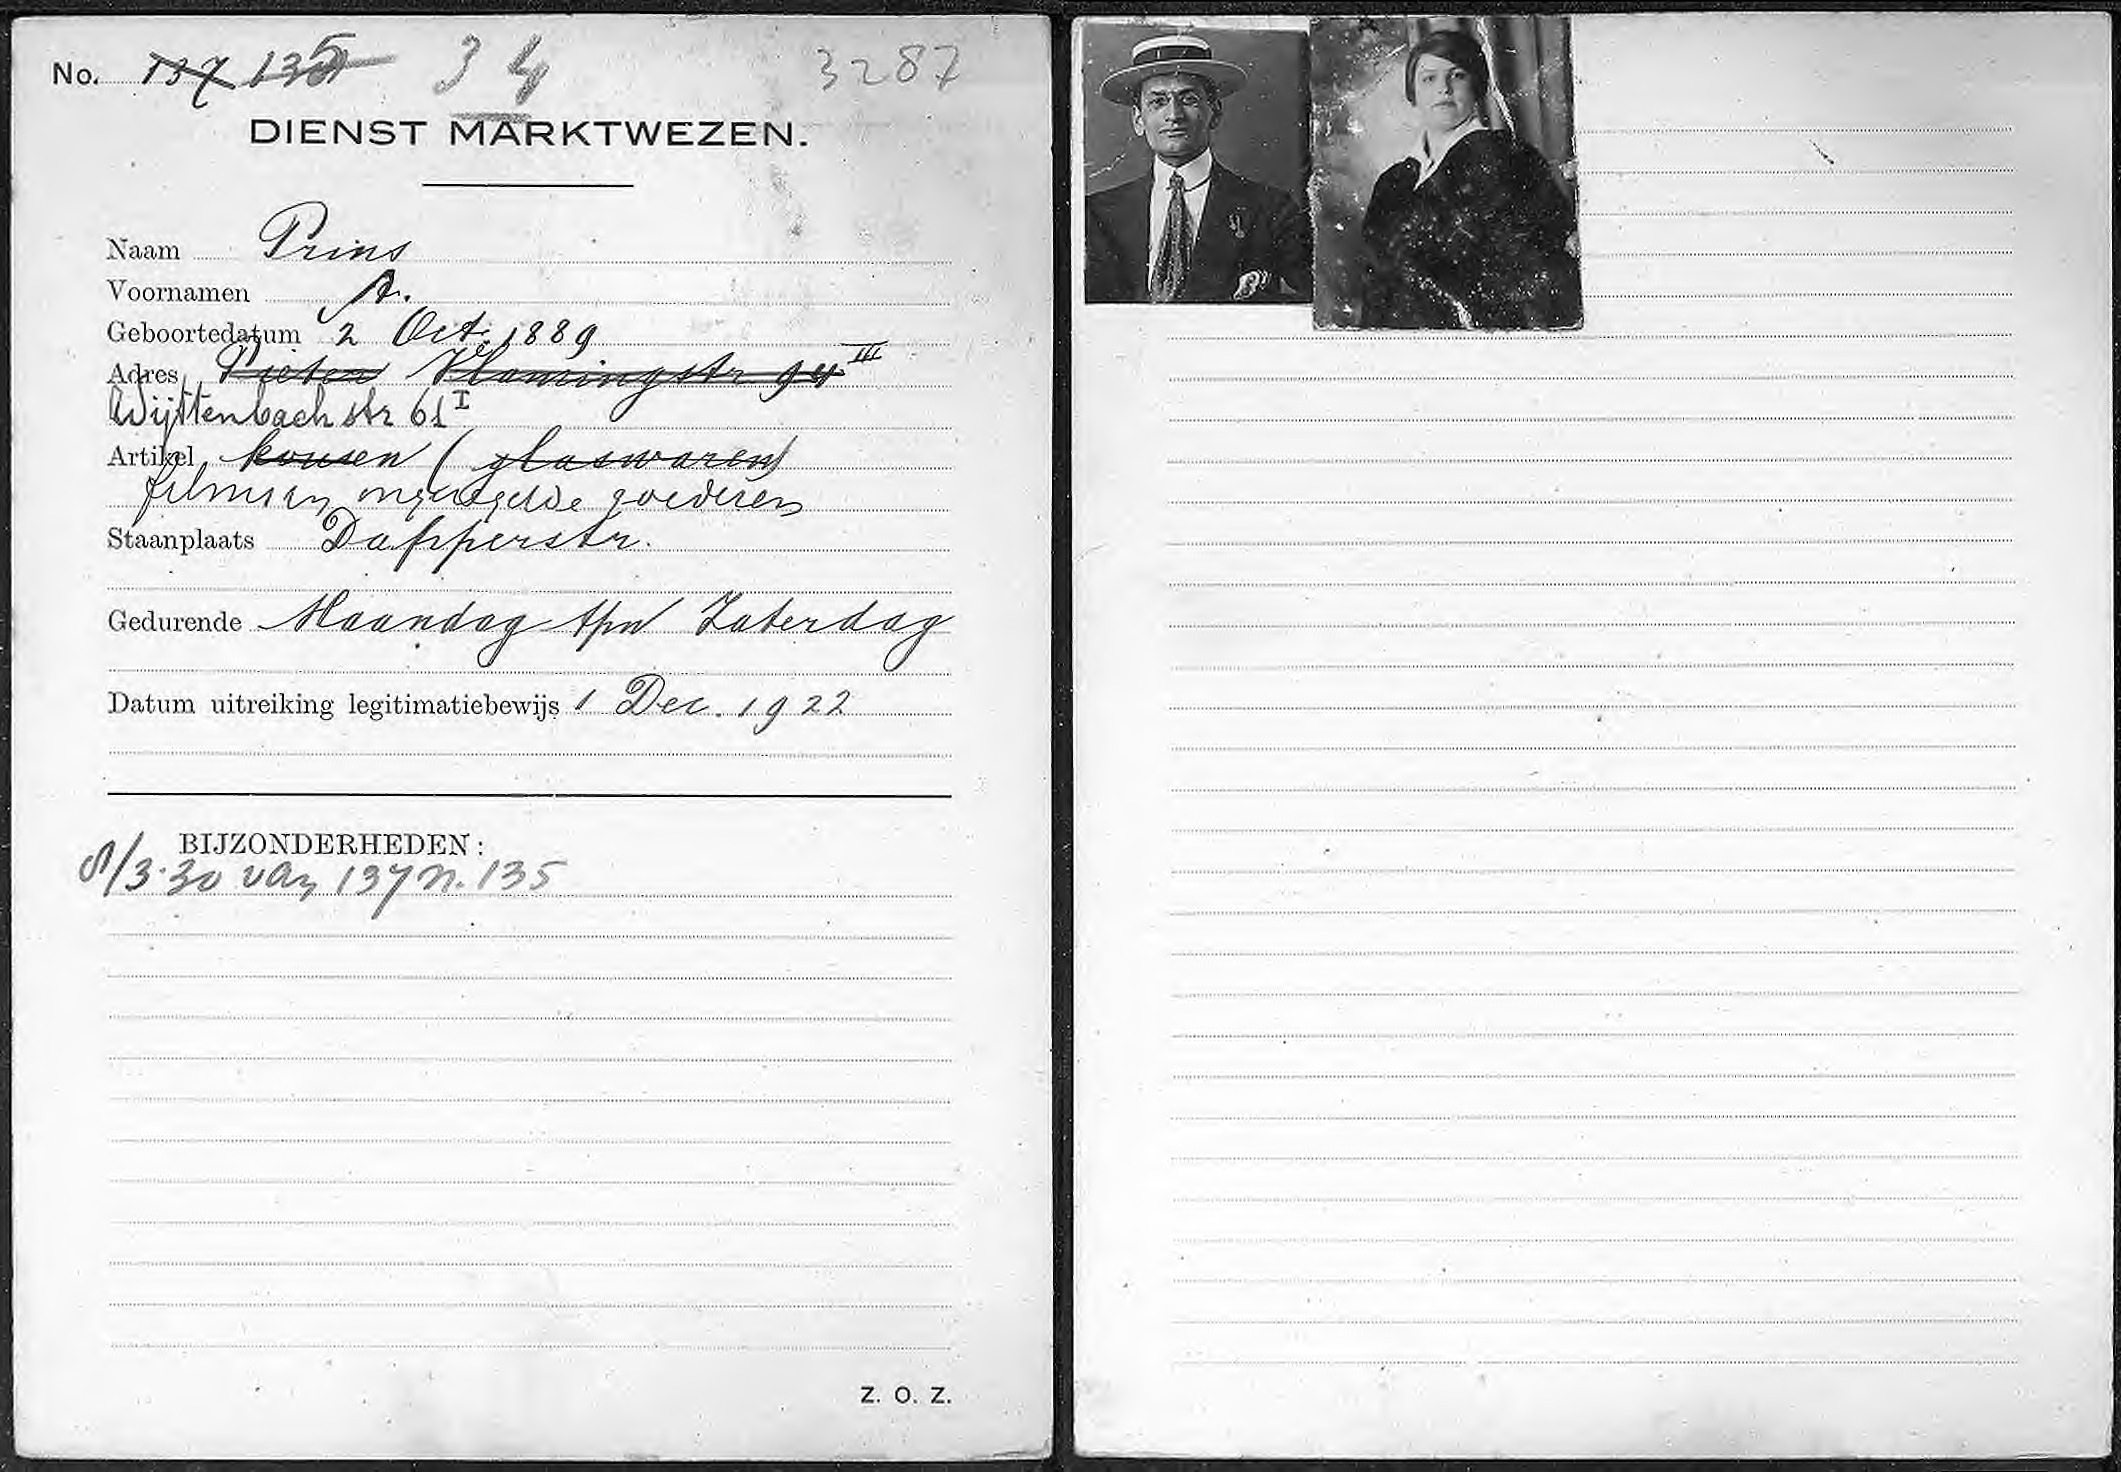 No. 137 135 34 3287
DIENST MARKTWEZEN.
Naam Prins
Voornamen A.
Geboortedatum 2 Oct. 1889
Adres Pieter Vlamingstr 94 III
Wijttenbachstr 61 I
Artikel kousen (glaswaren)
ongeregelde goederen
Staanplaats Dapperstr.
Gedurende Maandag t/m Zaterdag
Datum uitreiking legitimatiebewijs 1 Dec. 1922
BIJZONDERHEDEN:
8/3·30 van 137 n. 135
Z. O. Z.